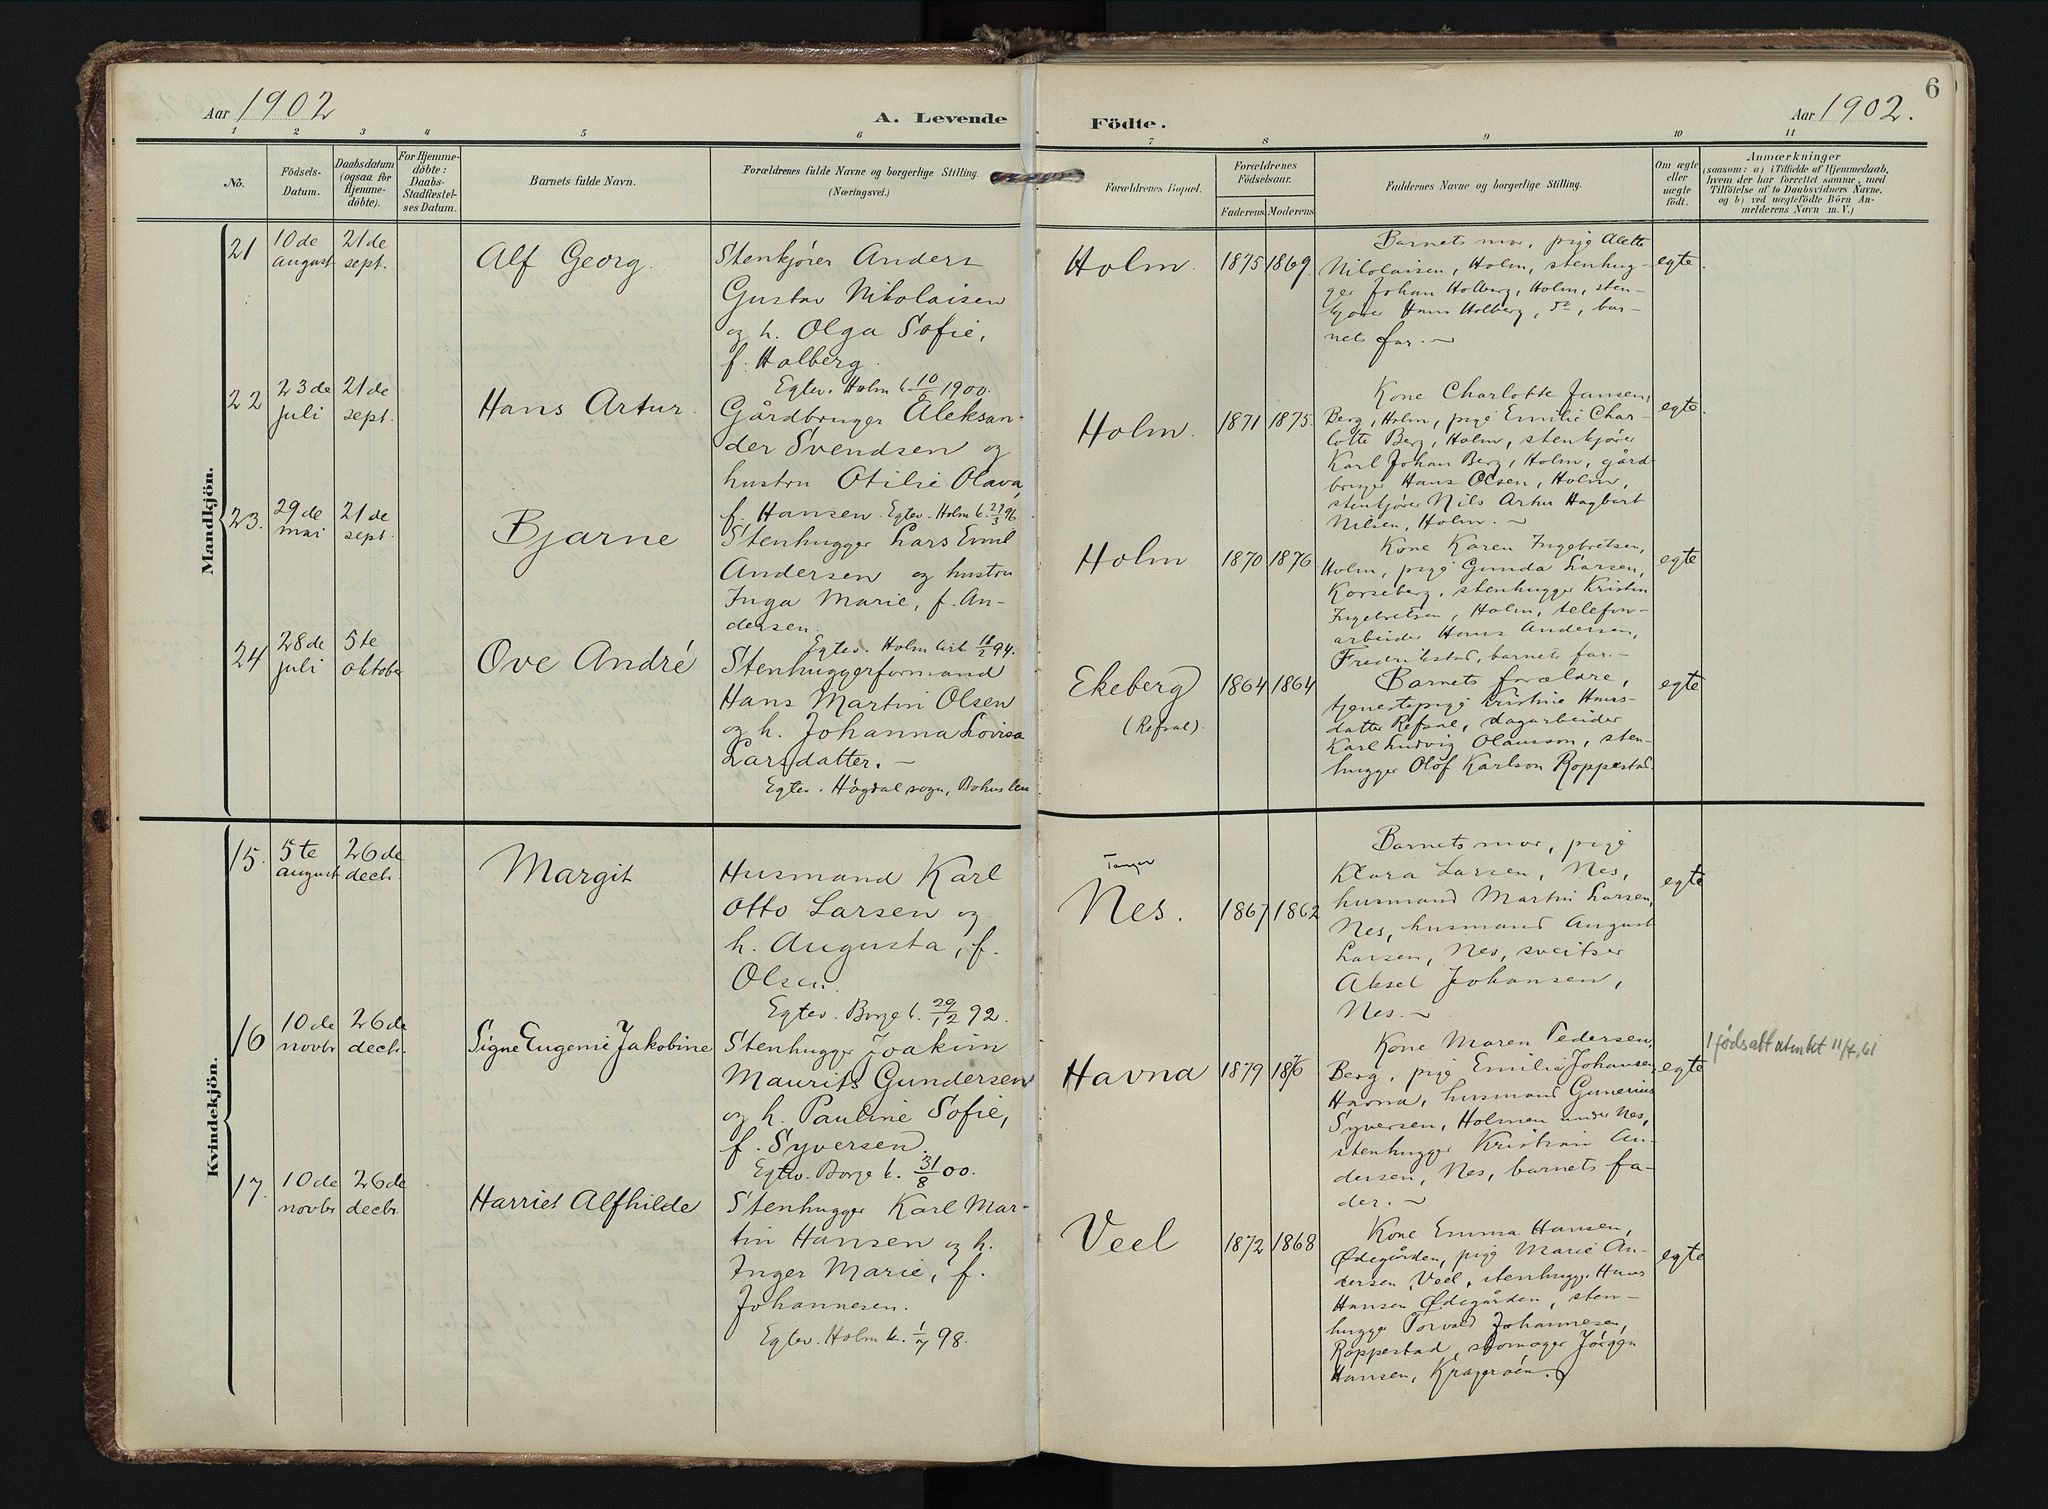 Aar 1902
A. Levende
Födte.
Aar 1902.
6
1 2 3 4 5 6 7 8 9 10 11
No.
Födsels-
Datum.
Daabsdatum
(ogsaa for
Hjemme-
döbte).
For Hjemme-
döbte:
Daabs-
Stadfæstel-
ses Datum.
Barnets fulde Navn.
Forældrenes fulde Navne og borgerlige Stilling.
(Næringsvei.)
Forældrenes Bopæl.
Forældrenes
Födselsaar.
Faderens. Moderens.
Faddernes Navne og borgerlige Stilling.
Om ægte
eller
uægte
födt.
Anmærkninger
(saasom: a) i Tilfælde af Hjemmedaab,
hvem der har forrettet samme, med
Tilföielse af to Daabsvidners Navne.
og b) ved uægtefödte Börn An-
melderens Navn m. V.)
Mandkjön.
21
10de
august
21de
sept.
Alf Georg.
Stenkjører Anders
Gustav Nikolaisen
og h. Olga Sofie,
f. Holberg.
Egtev. Holm k. 10/6 1900.
Holm.
1875
1869.
Barnets mor, pige Alette
Nikolaisen, Holm, stenhug-
ger Johan Holberg, Holm, sten-
kjører Hans Holberg, bar-
nets far. —
egte
22
23de
juli
21de
sept.
Hans Artur.
Gårdbruger Aleksan-
der Svendsen og
hustru Otilie Olava,
f. Hansen. Egtev. Holm k. 27/3 96
Holm.
1871
1875.
Kone Charlotte Jansen,
Berg, Holm, pige Emilie Char-
lotte Berg, Holm, stenkjører
Karl Johan Berg, Holm, gård-
bruger Hans Olsen, Holm,
stenkjører Nils Artur Hagbart
Nilsen, Holm. —
egte
23.
29de
mai
21de
sept.
Bjarne
Stenhugger Lars Emil
Andersen og hustru
Inga Marie, f. An-
dersen.
Egtev. Holm kirk. 18/2 94.
Holm
1870
1876
Kone Karen Ingebretsen,
Holm, pige Gunda Larsen,
Korseberg, stenhugger Kristin
Ingebretsen, Holm, telefon-
arbeider Hans Andersen,
Fredrikstad, barnets far. —
egte
24
28de
juli
5te
oktober
Ove André
Stenhuggerformand
Hans Martin Olsen
og h. Johanna Lovisa
Larsdatter. —
Egtev. Högdal sogn, Bohuslen
Ekeberg
(Refsal).
1864
1864
Barnets forældre,
tjenestepige Kristine Hans-
datter Refsal, dagarbeider
Karl Ludvig Olausson, sten-
hugger Olof Karlson Roppestad.
egte
Kvindekjön.
15.
5te
august
26de
decbr.
Margit
Husmand Karl
Otto Larsen og
h. Augusta, f.
Olsen.
Egtev. Borge k. 29/12 92.
Nes.
1867
1862
Barnets mor, pige
Klara Larsen, Nes,
husmand Martin Larsen,
Nes, husmand August
Larsen, Nes, sveitser
Aksel Johansen,
Nes. —
egte
16
10de
novbr
26de
decbr.
Signe Eugenie Jakobine
Stenhugger Joakim
Maurits Gundersen
og h. Pauline Sofie,
f. Syversen.
Egtev. Borge k. 31/8 00.
Havna
1879
1876
Kone Maren Pedersen,
Berg, pige Emilie Johansen,
Havna, husmand Gunerius
Syversen, Holmen under Nes,
stenhugger Kristian An-
dersen, Nes, barnets fa-
der. —
egte
1 fødsattutsnkt 11/4.61
17.
10de
novbr
26de
decbr.
Harriet Alfhilde
Stenhugger Karl Mar-
tin Hansen og h.
Inger Marie, f.
Johannesen.
Egtev. Holm k. 1/7 98.
Veel
1872
1868
Kone Emma Hansen,
Ødegården, pige Marie An-
dersen, Veel, stenhugger Hans
Hansen Ødegården, sten-
hugger Torvald Johannesen,
Roppestad, skomager Jörgen
Hansen, Kragerøen.
egte